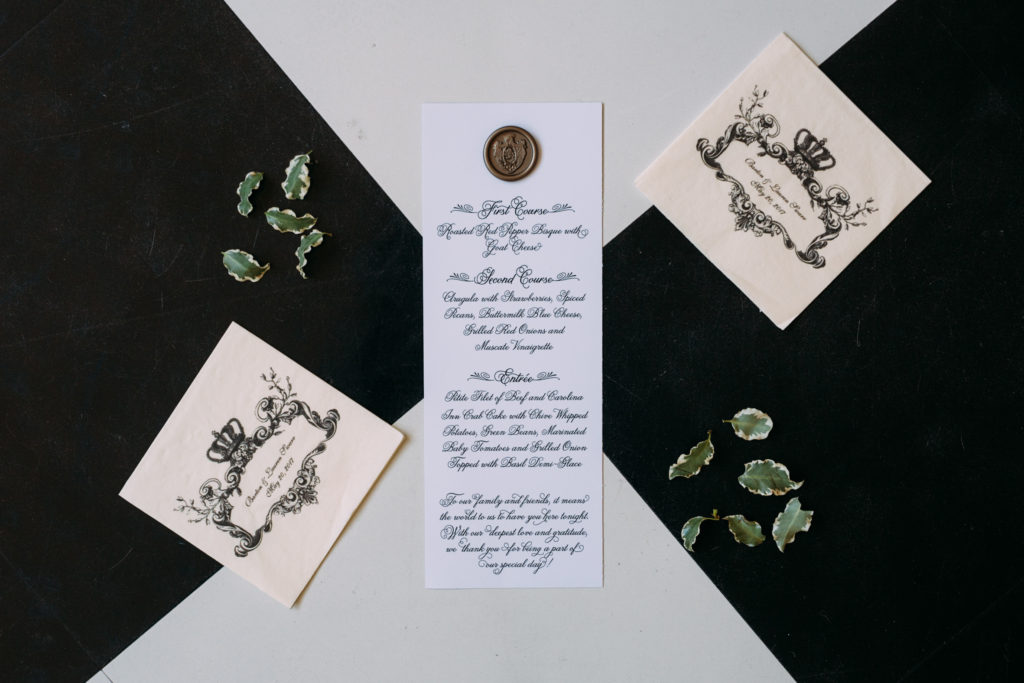 First Course
Roasted Red Pepper Bisque with
Goat Cheese
Second Course
Arugula with Strawberries, Spiced
Pecans, Buttermilk Blue Cheese,
Grilled Red Onions and
Muscate Vinaigrette
Entrée
Petite Filet of Beef and Carolina
Inn Crab Cake with Chive Whipped
Potatoes, Green Beans, Marinated
Baby Tomatoes and Grilled Onion
Topped with Basil Demi-Glace
To our family and friends, it means
the world to us to have you here tonight.
With our deepest love and gratitude,
we thank you for being a part of
our special day!
&
May 20, 2017
&
May 20, 2017